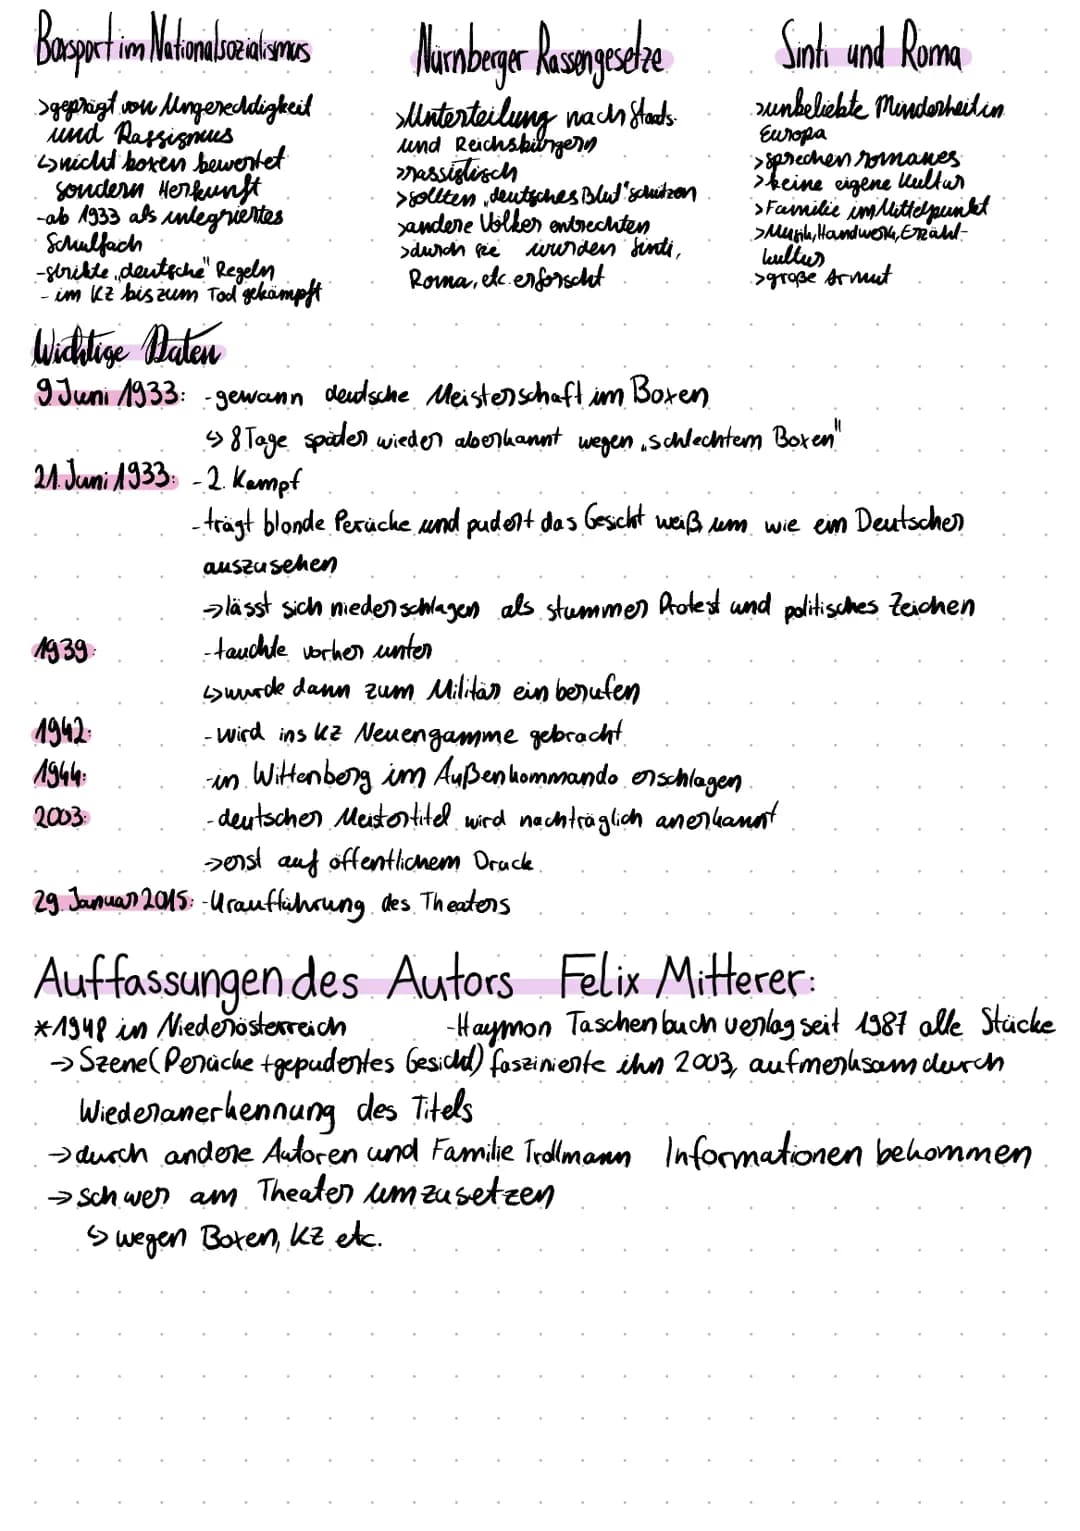 Boxsport im Nationalsozialismus
>geprägt von Ungerechtigkeit
und Rassismus
↳nicht boxen bewertet
sondern Herkunft
-ab 1933 als integriertes
Schulfach
-strikte „deutsche" Regeln
- im KZ bis zum Tod gekämpft
Nürnberger Rassengesetze
>Unterteilung nach Staats-
und Reichsbürgern
>rassistisch
>sollten „deutsches Blut" schützen
>andere Völker entrechten
>durch sie wurden Sinti,
Roma, etc. erforscht
Sinti und Roma
>unbeliebte Minderheit in
Europa
>sprechen romanes
>keine eigene Kultur
>Familie im Mittelpunkt
>Musik, Handwerk, Erzähl-
kultur
>große Armut
Wichtige Daten
9 Juni 1933: -gewann deutsche Meisterschaft im Boxen
↳ 8 Tage später wieder aberkannt wegen „schlechtem Boxen"
21. Juni 1933: -2. Kampf
-trägt blonde Perücke und pudert das Gesicht weiß um wie ein Deutscher
auszusehen
→lässt sich niederschlagen als stummer Protest und politisches Zeichen
1939: -tauchte vorher unter
↳wurde dann zum Militär einberufen
1942: -wird ins KZ Neuengamme gebracht
1944: -in Wittenberg im Außenkommando erschlagen
2003: -deutscher Meistertitel wird nachträglich anerkannt
→erst auf öffentlichem Druck
29. Januar 2015: -Uraufführung des Theaters
Auffassungen des Autors Felix Mitterer:
*1948 in Niederösterreich -Haymon Taschenbuch verlag seit 1987 alle Stücke
→ Szene (Perücke + gepudertes Gesicht) faszinierte ihn 2003, aufmerksam durch
Wiederanerkennung des Titels
→durch andere Autoren und Familie Trollmann Informationen bekommen
→ schwer am Theater umzusetzen
↳ wegen Boxen, KZ etc.